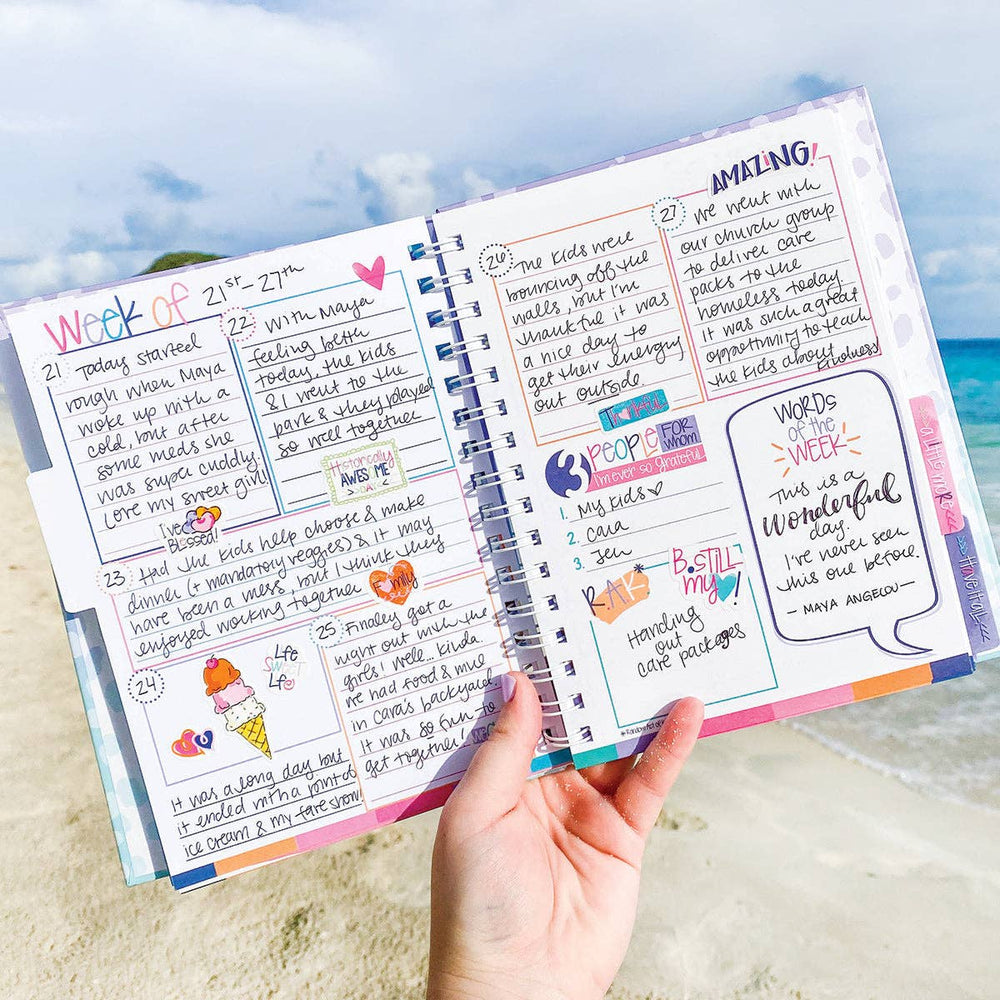 Week of 21st-27th
21 Today started
rough when Maya
woke up with a
cold, but after
some meds she
was super cuddly.
Love my sweet girl!
I've Blessed!
22 With Maya
feeling bettr
today, the kids
& I went to the
park & they played
so well together
Historically
AWESOME
> DAY <
23 Had the kids help choose & make
dinner (+ mandatory veggies) & it may
have been a mess, but I think they
enjoyed working together
Family
24
Life
SWEET
Life
It was a long day but
it ended with a pint of
ice cream & my fave show.
25 Finaley got a
night out with the
girls! Well... Kinda.
We had food &
in Cara's backyard.
It was so fun to
get together!
26 The kids were
bouncing off the
walls, but I'm
thankful it was
a nice day to
get their energy
out outside.
Thankful
AMAZING!
27 We went with
our church group
to deliver care
packs to the
homeless today.
It was such a great
opportunity to teach
the kids about
kindness
3 PEOPLE FOR whom
I'm ever so grateful
1. My Kids
2. Cara
3. Jen
R.A.K
B.STILL
MY !
Handing
out
care packages
WORDS
of the
WEEK
This is a
wonderful
day.
I've never seen
this one before.
- MAYA ANGELOU -
a little more<<
>>Have it all<<